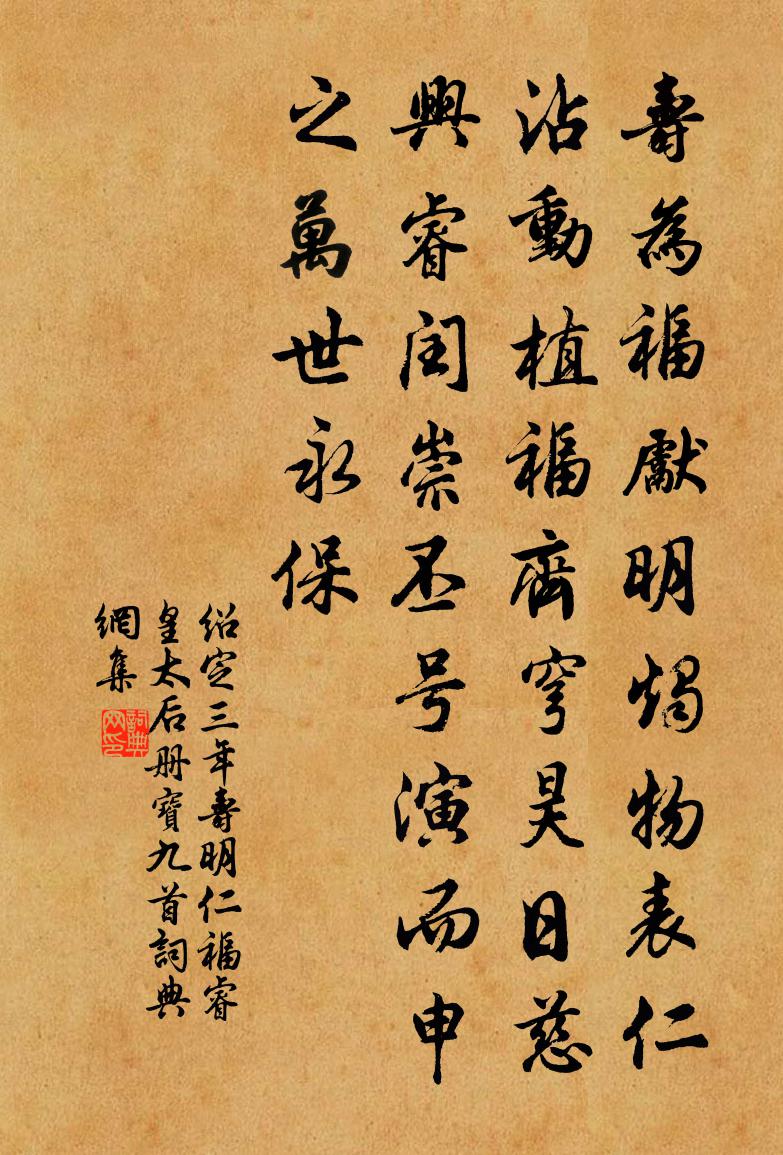 壽為福獻明燭物表仁
沾動植福齊穹昊日慈
興睿闰崇丕号演而申
之萬世永保
紹定三年壽明仁福睿
皇太后册寶九首詞典
網集
詞典網印